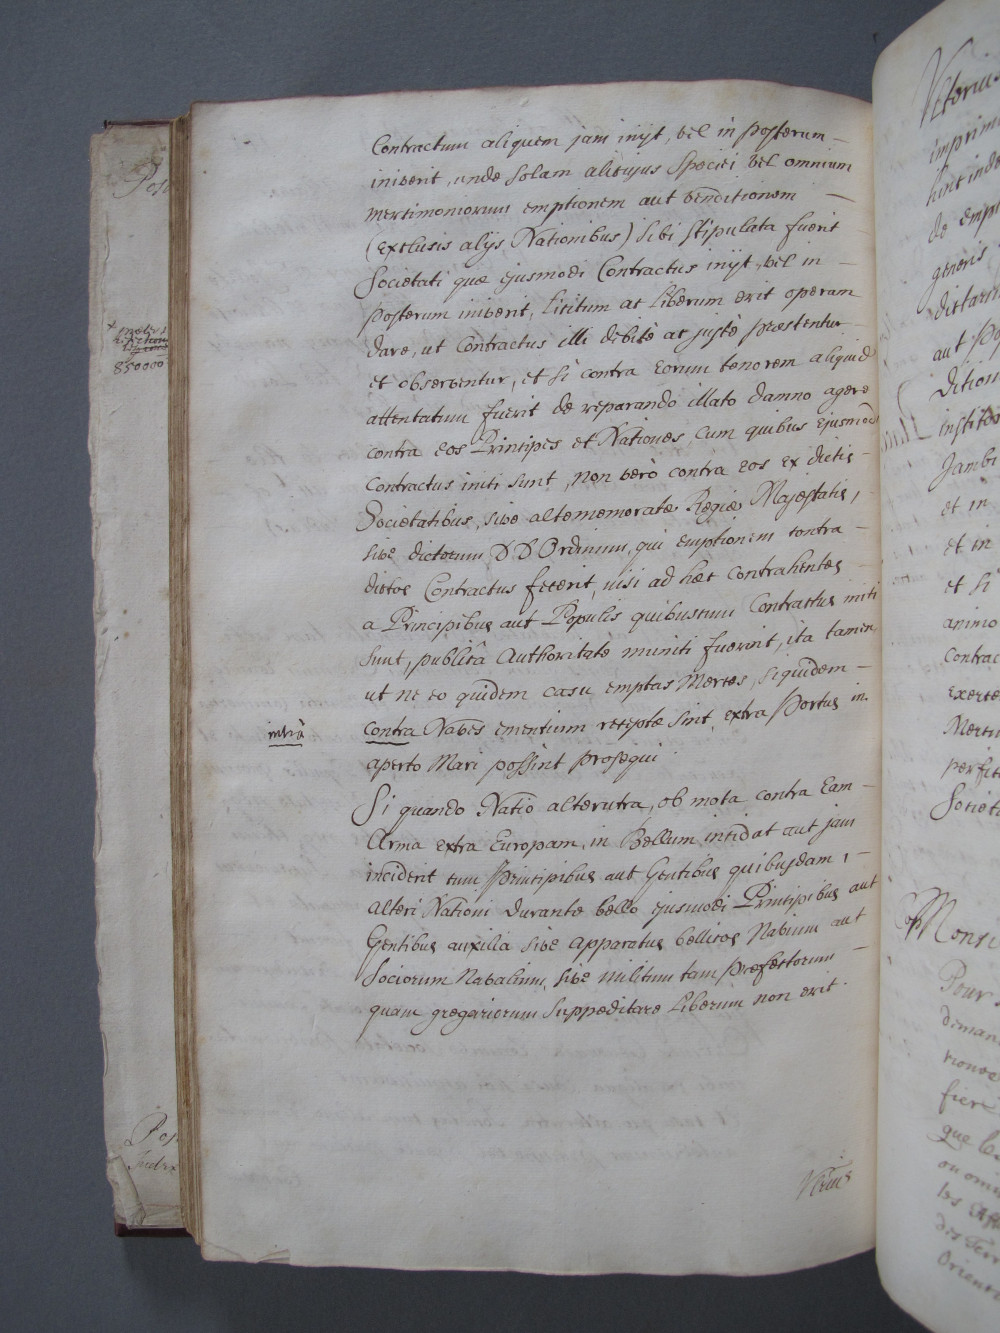 Contractum aliquem jam inijt, vel in posterum
iniverit, unde solam alicujus speciei vel omnium
mercimoniorum emptionem aut venditionem
(exclusis alijs Nationibus) sibi stipulata fuerit
Societati quæ ejusmodi Contractus inijt, vel in
posterum iniverit, licitum ac liberum erit operam
dare, ut Contractus illi debitè ac justè præstentur
et observentur, et si contra eorum tenorem aliquid
attentatum fuerit de reparando illato damno agere
contra eos Principes et Nationes, cum quibus ejusmodi
Contractus initi sunt, non verò contra eos ex dictis
Societatibus, sive altememoratæ Regiæ Majestatis,
sive dictorum DD Ordinum, qui emptionem contra
dictos Contractus fecerit, nisi ad hæc contrahentes
a Principibus aut Populis quibuscum Contractus initi
sunt, publicâ Authoritate muniti fuerint, ita tamen
ut ne eo quidem casu emptas Merces, siquidem
intrà
contra Naves ementium receptæ sint, extra Portus in
aperto Mari possint prosequi
Si quando Natio alterutra, ob mota contra Eam
Arma extra Europam, in Bellum incidat aut jam
inciderit cum Principibus aut Gentibus quibusdam,
alteri Nationi durante bello ejusmodi Principibus aut
Gentibus auxilia sive apparatus bellicos Navium aut
Sociorum Navalium, sive militum tam præfectorum
quam gregariorum suppeditare liberum non erit.
850000
imprim
de emp
generis
aut po
Dition
institos
Jambi
et in
et in
et si
animo
contrac
exerce
Merci
perfic
Societ
Monsi
Pour
deman
que le
ou omi
les Aff
Orient